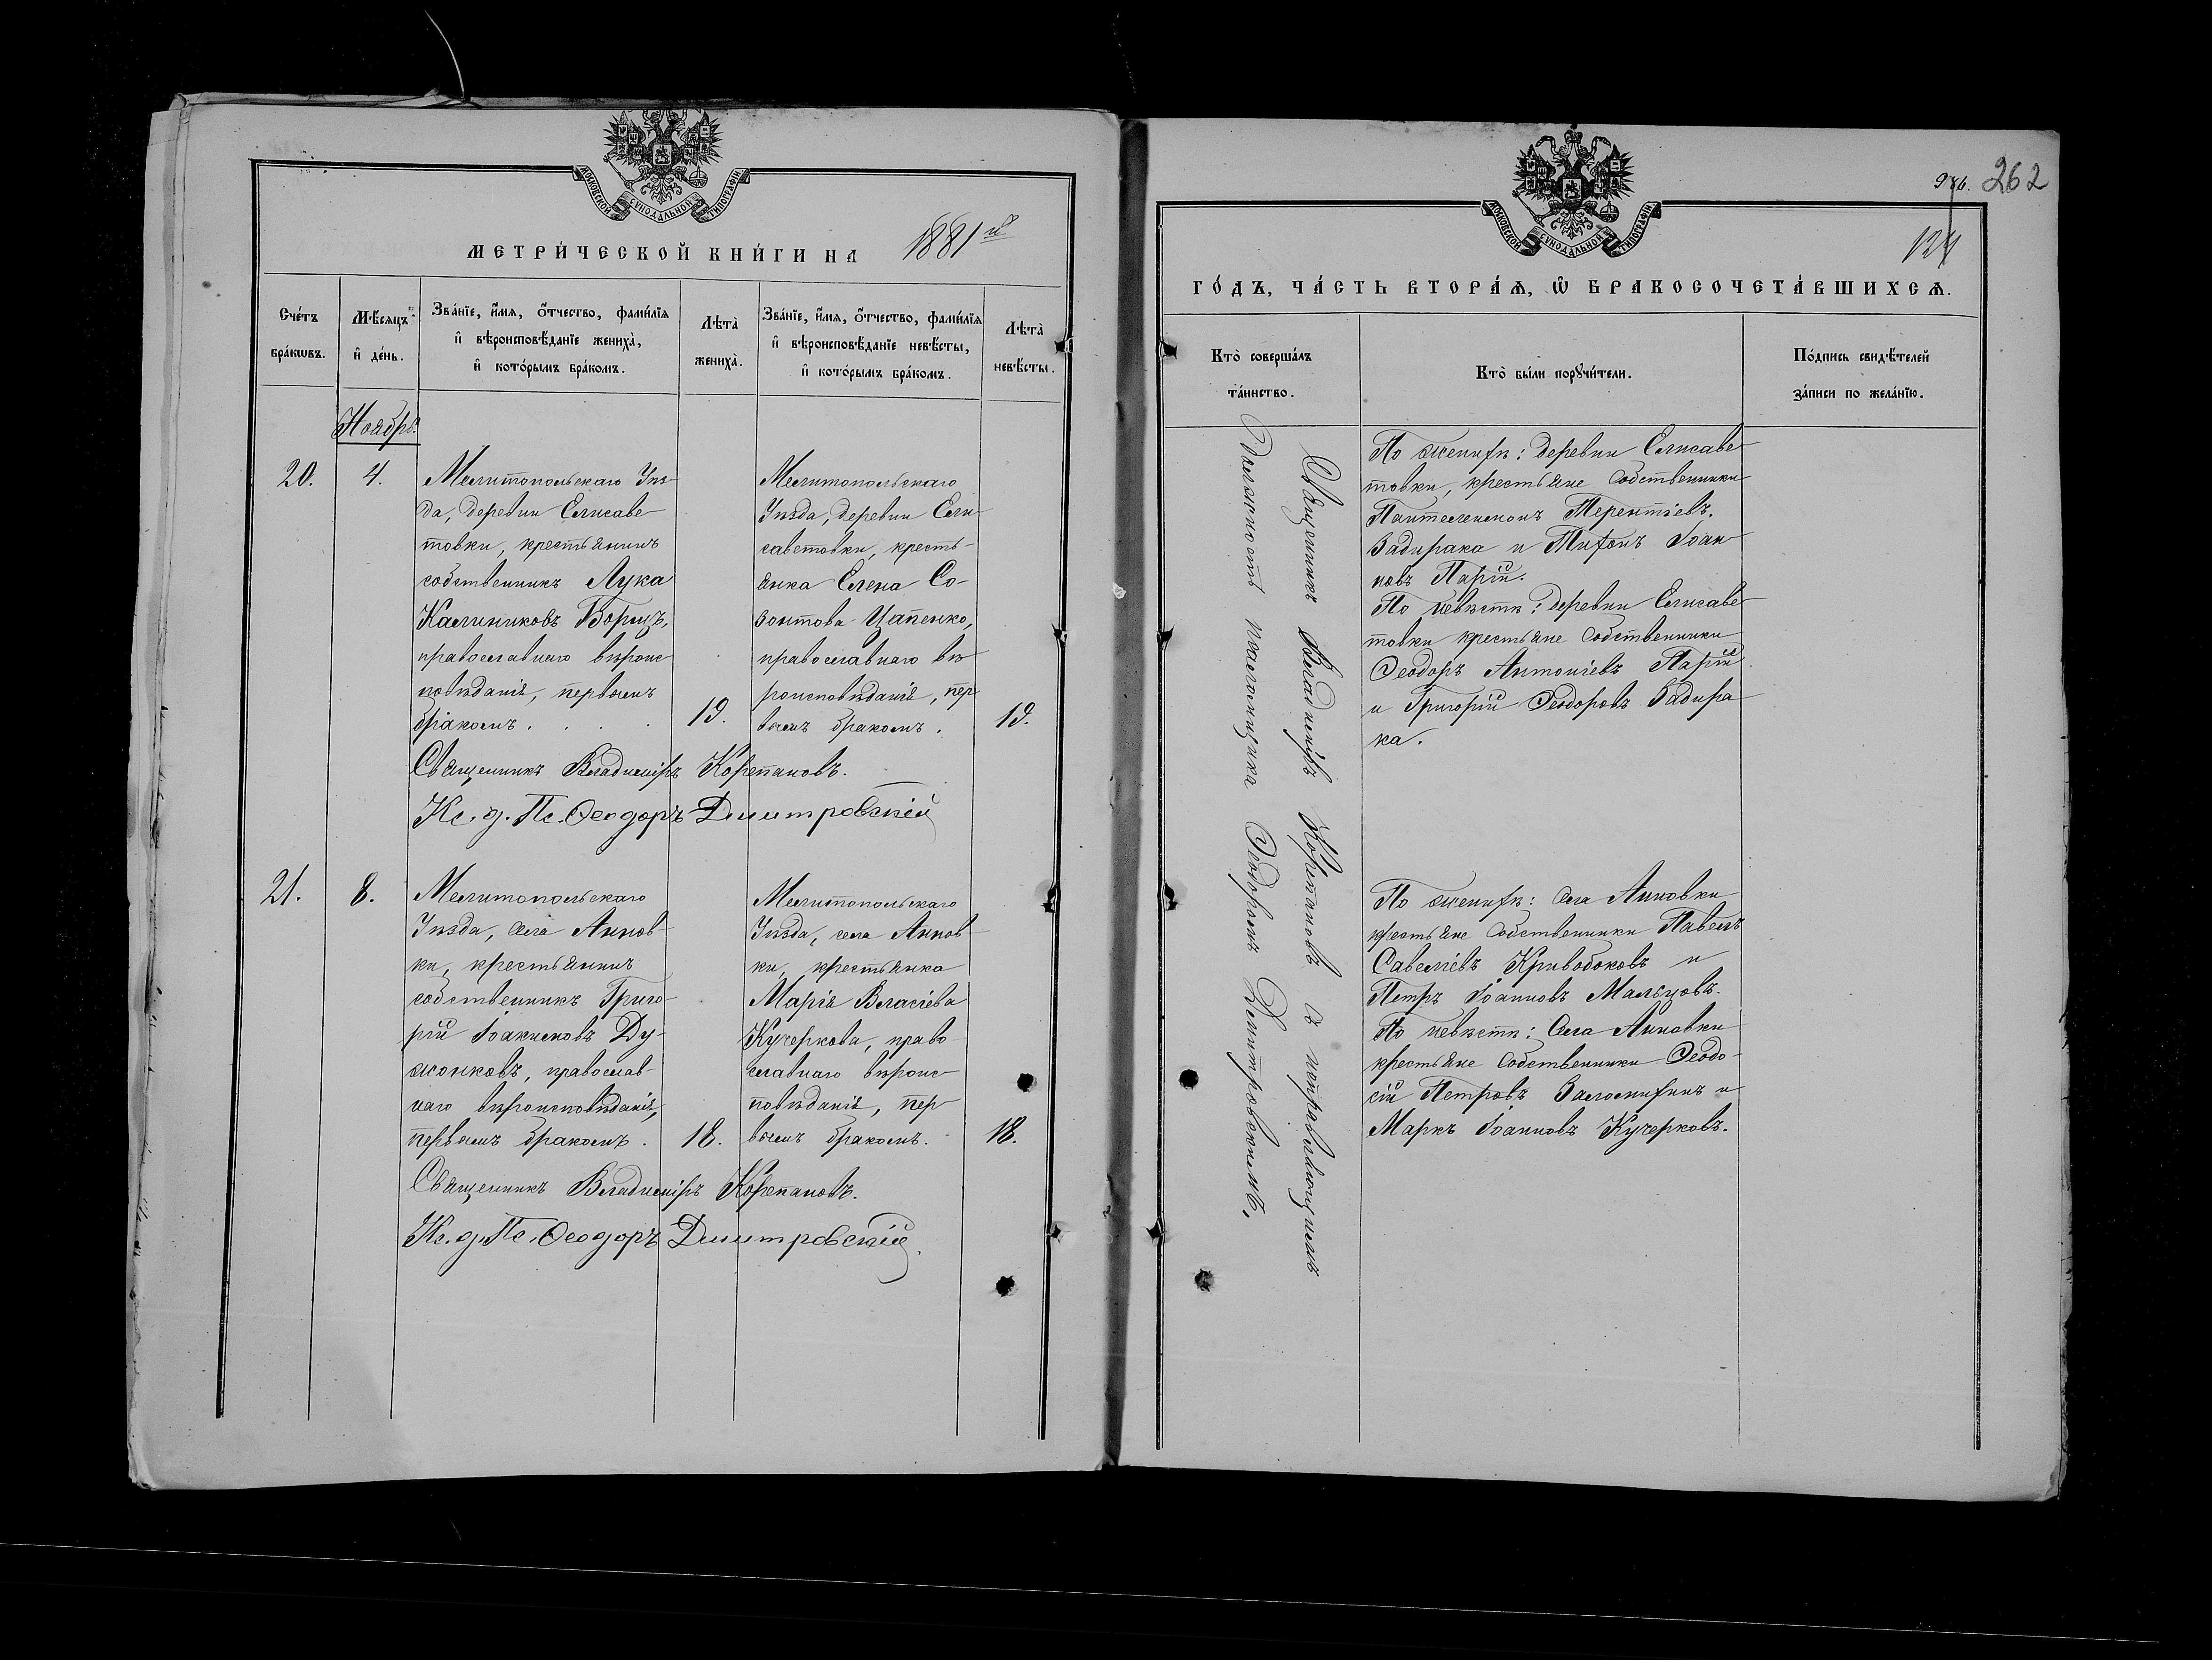 МОСКОВСКОЙ СУНОДАЛЬНОЙ ТИПОГРАФІИ
МЕТРИ́ЧЕСКОЙ КНИ́ГИ НА 1881й
Сче́тъ бра́кωвъ.
Мѣ́сяцъ и҆ де́нь.
Зва́нїе, и҆́мя, ѻ҆́тчество, фами́лїя и҆ вѣроисповѣ́данїе жениха̀, и҆ кото́рымъ бра́комъ.
Лѣ́та жениха̀.
Зва́нїе, и҆́мя, ѻ҆́тчество, фами́лїя и҆ вѣроисповѣ́данїе невѣ́сты, и҆ кото́рымъ бра́комъ.
Лѣ́та невѣ́сты.
Ноябрь.
20.
4.
Мелитопольскаго Уѣз-
да, деревни Елисаве-
товки, крестьянинъ
собственникъ Лука
Калиниковъ Борщъ,
православнаго вѣроис-
повѣданія, первымъ
бракомъ.
19.
Мелитопольскаго
Уѣзда, деревни Ели-
саветовки, кресть-
янка Елена Со-
зонтова Цапенко,
православнаго вѣ-
роисповѣданія, пер-
вымъ бракомъ.
19.
Священникъ Владиміръ Корепановъ.
Ис. д. Пс. Ѳеодоръ Димитровскій
21.
8.
Мелитопольскаго
Уѣзда, села Аннов-
ки, крестьянинъ
собственникъ Григо-
рій Іоакимовъ Ду-
жонковъ, православ-
наго вѣроисповѣданія,
первымъ бракомъ.
18.
Мелитопольскаго
Уѣзда, села Аннов-
ки, крестьянка
Марія Власіева
Кучеркова, право-
славнаго вѣроис-
повѣданія, пер-
вымъ бракомъ.
18.
Священникъ Владиміръ Корепановъ.
Ис. д. Пс. Ѳеодоръ Димитровскій.
МОСКОВСКОЙ СУНОДАЛЬНОЙ ТИПОГРАФІИ
262
134
ГО́ДЪ, ЧА́СТЬ ВТОРА́Ѧ, Ѽ БРАКОСОЧЕТА́ВШИХСѦ.
Кто̀ соверша́лъ та́инство.
Кто̀ бы́ли порꙋчи́тели.
По́дпись свидѣ́телей за́писи по жела́нїю.
Священникъ Владиміръ Корепановъ съ исправляющимъ
должность псаломщика Ѳеодоромъ Димитровскимъ.
По женихѣ: деревни Елисаве-
товки, крестьяне собственники
Пантелеимонъ Терентіевъ
Задирака и Тихонъ Іоан-
новъ Парій.
По невѣстѣ: деревни Елисаве-
товки крестьяне собственники
Ѳеодоръ Антоніевъ Парій
и Григорій Ѳеодоровъ Задира-
ка.
По женихѣ: села Анновки
крестьяне собственники Павелъ
Савеліевъ Кривобоковъ и
Петръ Іоанновъ Мальцовъ.
По невѣстѣ: села Анновки
крестьяне собственники Ѳеодо-
сій Петровъ Заломихинъ и
Маркъ Іоанновъ Кучерковъ.